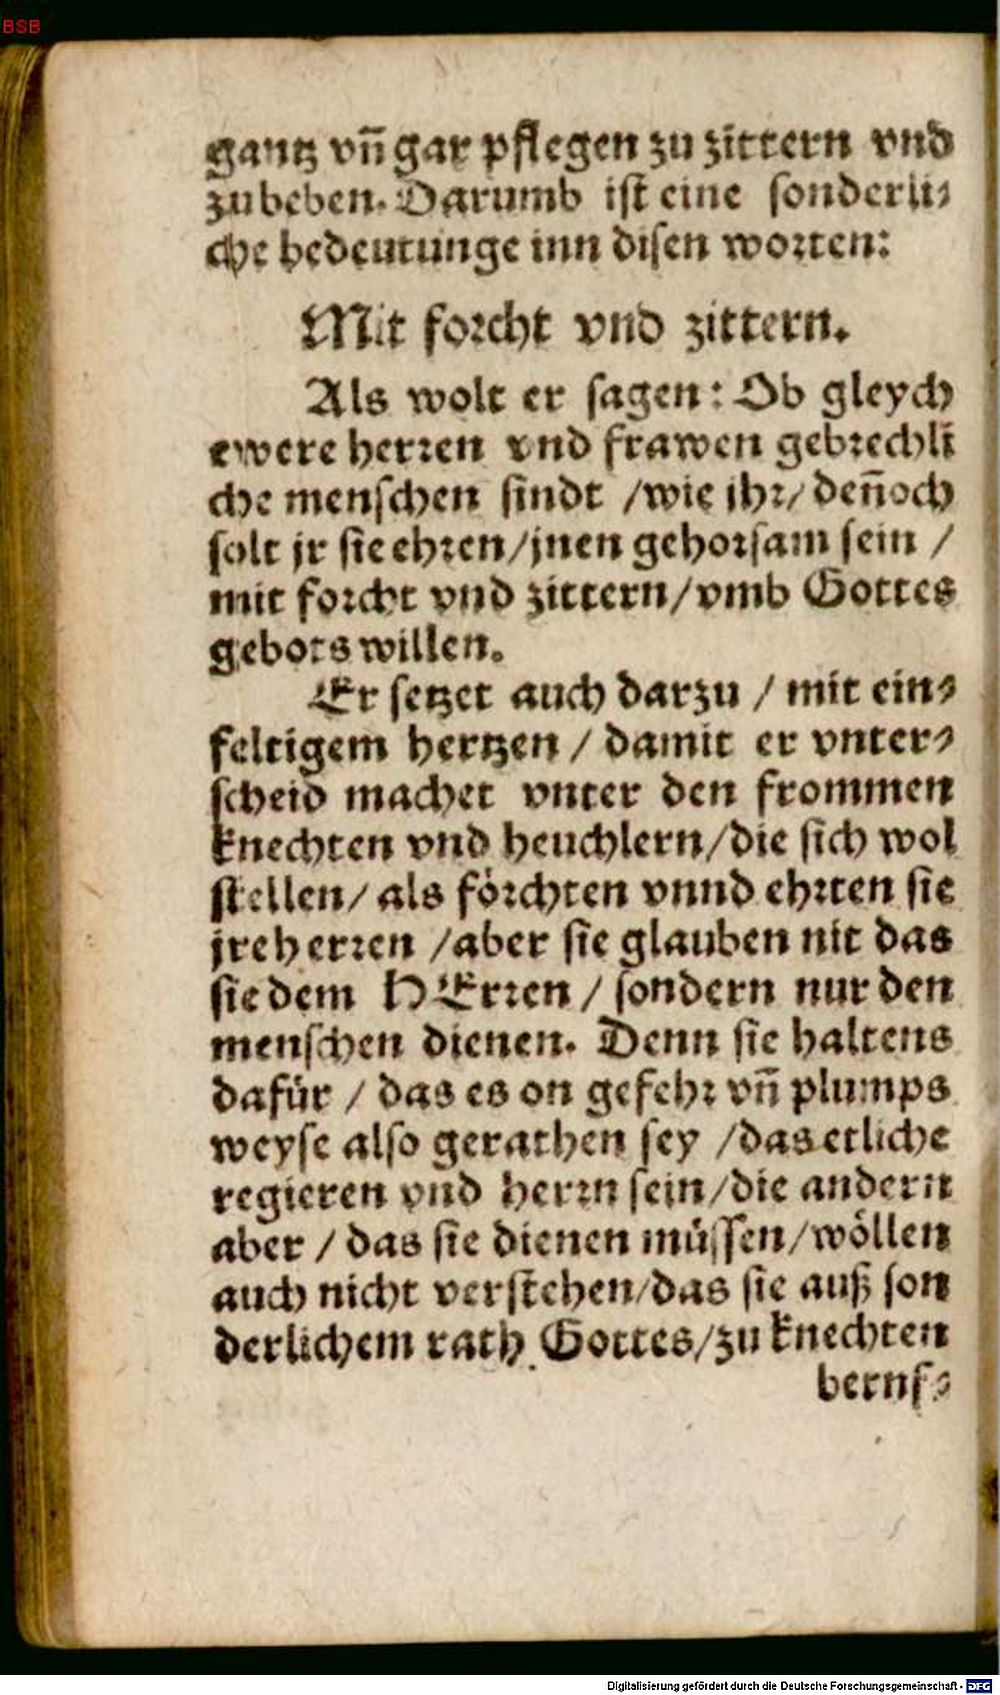 BSB
gantz vn̄ gar pflegen zu zittern vnd
zubeben. Darumb ist eine sonderli-
che bedeutunge inn disen worten:
Mit forcht vnd zittern.
Als wolt er sagen: Ob gleych
ewere herren vnd frawen gebrechli
che menschen sindt / wie ihr / den̄och
solt jr sie ehren / jnen gehorsam sein /
mit forcht vnd zittern / vmb Gottes
gebots willen.
Er setzet auch darzu / mit ein-
feltigem hertzen / damit er vnter-
scheid machet vnter den frommen
knechten vnd heuchlern / die sich wol
stellen / als förchten vnnd ehrten sie
jre herren / aber sie glauben nit das
sie dem HErren / sondern nur den
menschen dienen. Denn sie haltens
dafür / das es on gefehr vn̄ plumps
weyse also gerathen sey / das etliche
regieren vnd herrn sein / die andern
aber / das sie dienen müssen / wöllen
auch nicht verstehen / das sie auß son
derlichem rath Gottes / zu knechten
beruf-
Digitalisierung gefördert durch die Deutsche Forschungsgemeinschaft - DFG